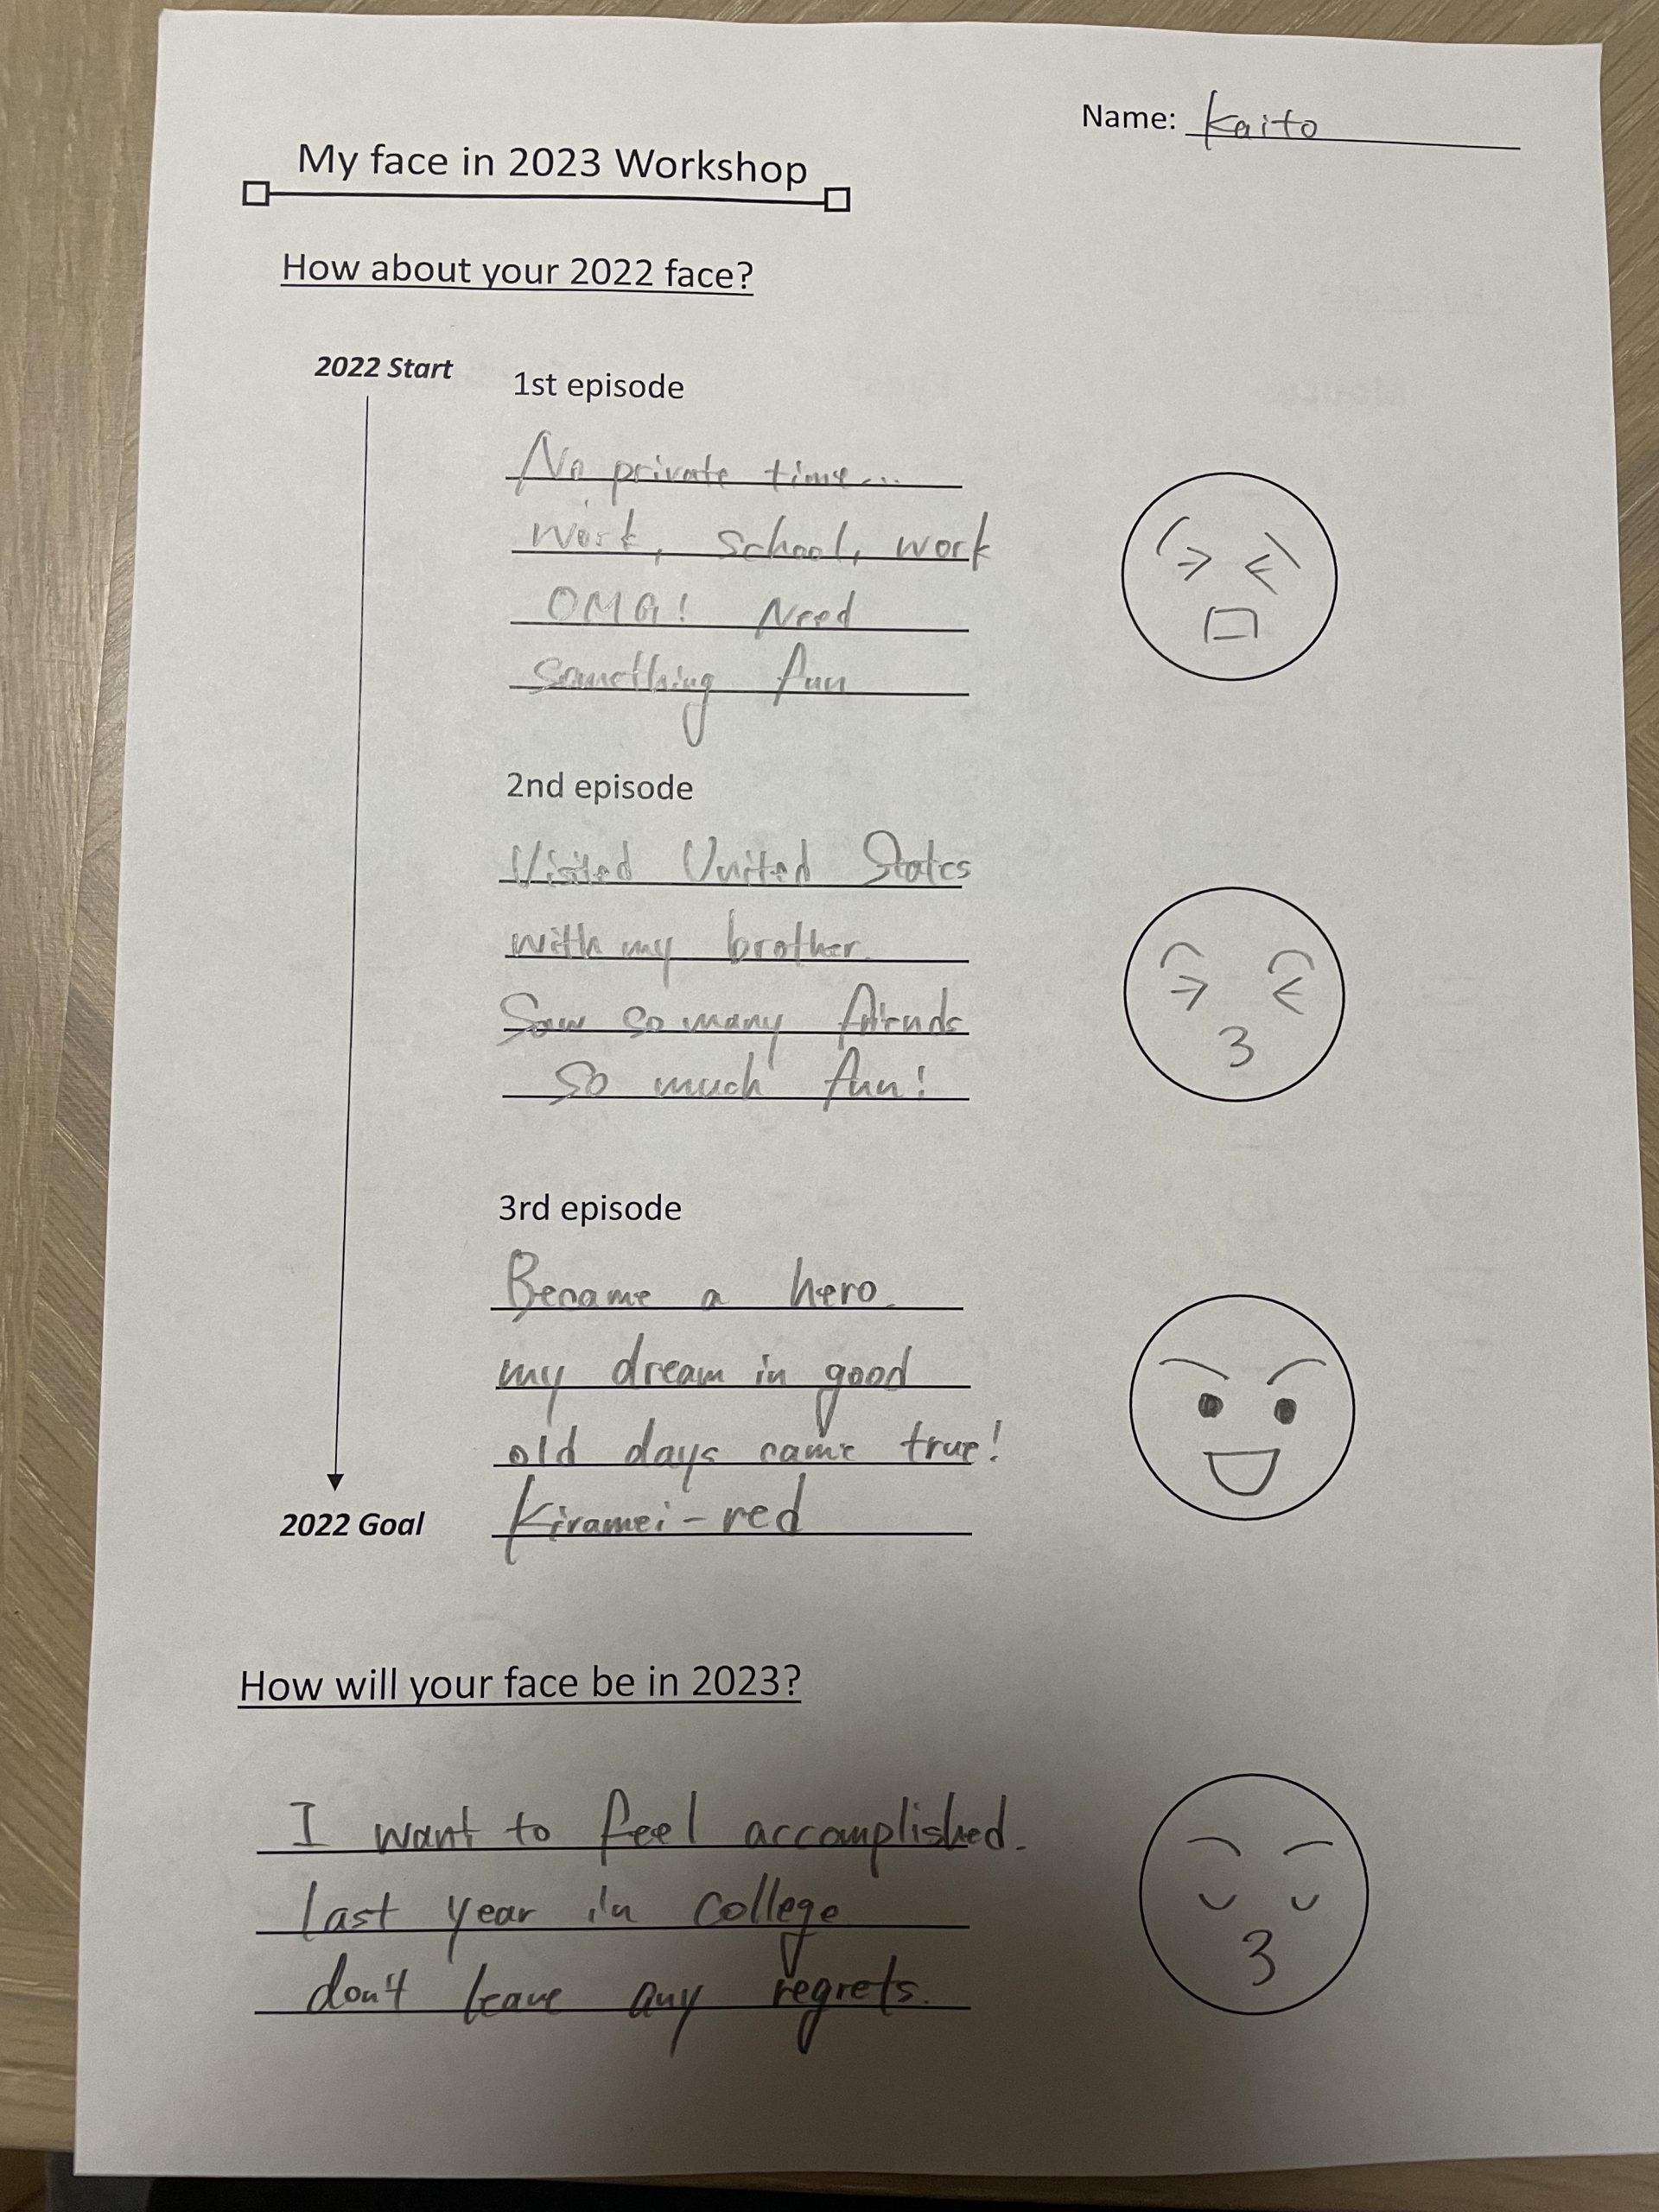 Name: Kaito
My face in 2023 Workshop
How about your 2022 face?
2022 Start
1st episode
No private time...
work, school, work
OMG! Need
something fun
2nd episode
Visited United States
with my brother.
Saw so many friends
So much fun!
3rd episode
Became a hero.
my dream in good
old days came true!
Kiramei-red
2022 Goal
How will your face be in 2023?
I want to feel accomplished.
last year in college
don't leave any regrets.